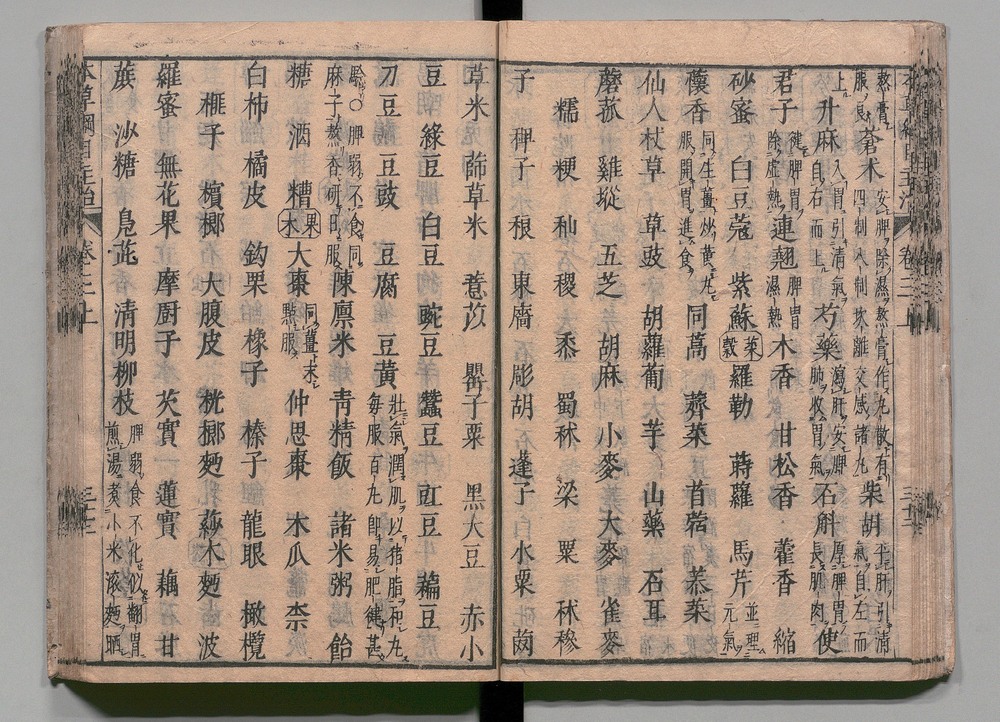 熬膏 蒼木 安脾除濕熬膏作丸散有 柴胡 平肝引清
服良 四制八制坎離交感諸丸 氣自左而
上 升麻 入胃引清氣 芍藥 瀉肝安脾 石斛 厚脾胃 使
自右而上 肺收胃氣 長肌肉
君子 健脾胃 連翹 脾胃 木香 甘松香 藿香 縮
除虛熱 濕熱
砂蜜 白豆蔻 紫蘇 穀菜 羅勒 蒔蘿 馬芹 並理 元氣
蘹香 同生薑炒黃丸 同蒿 薺菜 苜蓿 恭菜
服開胃進食
仙人杖草 草豉 胡蘿蔔 芋 山藥 石耳
蘑菰 雞㙡 五芝 胡麻 小麥 大麥 雀麥
糯 粳 秈 稷 黍 蜀秫 粱 粟 秫 穇
子 稗子 稂 東廧 彫胡 蓬子 水粟 䓑
草米 蒒草米 薏苡 罌子粟 黑大豆 赤小
豆 綠豆 白豆 豌豆 蠶豆 豇豆 藊豆
刀豆 豆豉 豆腐 豆黃 壯氣潤肌以猪脂和丸
每服百丸即易肥健甚
驗○ 脾弱不食同 陳廪米 青精飯 諸米粥 飴
麻子熬香研日服
糖 酒 糟 果木 大棗 同薑末 㸃服 仲思棗 木瓜 柰
白柿 橘皮 鈎栗 橡子 榛子 龍眼 橄欖
榧子 檳榔 大腹皮 桄榔麪 莏木麪 波
羅蜜 無花果 摩厨子 芡實 蓮實 藕 甘
蔗 沙糖 鳧茈 清明柳枝 脾弱食不化似翻胃
煎湯煮小米滾麵晒
本草綱目主治 卷之三上 三十三